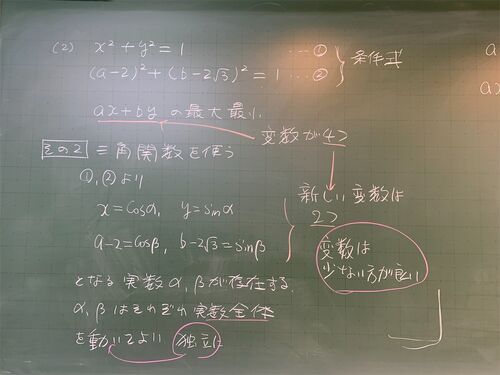 (2) x² + y² = 1 …①
(a-2)² + (b-2√3)² = 1 …②
条件式
ax+by の最大最小
変数が4つ
その2 三角関数を使う
①,②より
x = cosα, y = sinα
a-2 = cosβ, b-2√3 = sinβ
新しい変数は
2つ
変数は
少ない方が良い
となる実数α,βが存在する.
α,βはそれぞれ実数全体
を動いてよい 独立に
a
ax